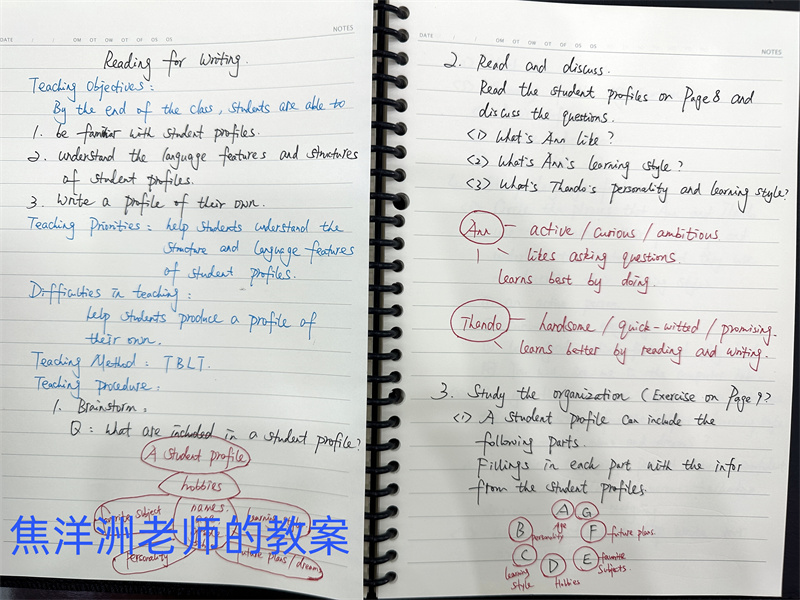 DATE
NOTES
Reading for Writing.
Teaching Objectives:
By the end of the class, students are able to
1. be familiar with student profiles.
2. understand the language features and structures
of student profiles.
3. Write a profile of their own.
Teaching Priorities: help students understand the
structure and language features
of student profiles.
Difficulties in teaching:
help students produce a profile of
their own.
Teaching Method: TBLT.
Teaching procedure:
1. Brainstorm:
Q: What are included in a student profile?
A student profile
hobbies
names.
personality
future plans / dreams
焦洋洲老师的教案
DATE
NOTES
2. Read and discuss.
Read the student profiles on Page 8 and
discuss the questions.
<1> What's Ann like?
<2> What's Ann's learning style?
<3> What's Thando's personality and learning style?
Ann
active / curious / ambitious
likes asking questions
learns best by doing.
Thando
handsome / quick-witted / promising.
learns better by reading and writing.
3. Study the organization (Exercise on Page 9)
<1> A student profile can include the
following parts.
Fillings in each part with the infor
from the student profiles.
A
age
G
B
personality
F
future plans.
C
learning
style
D
Hobbies
E
favorite
subjects.